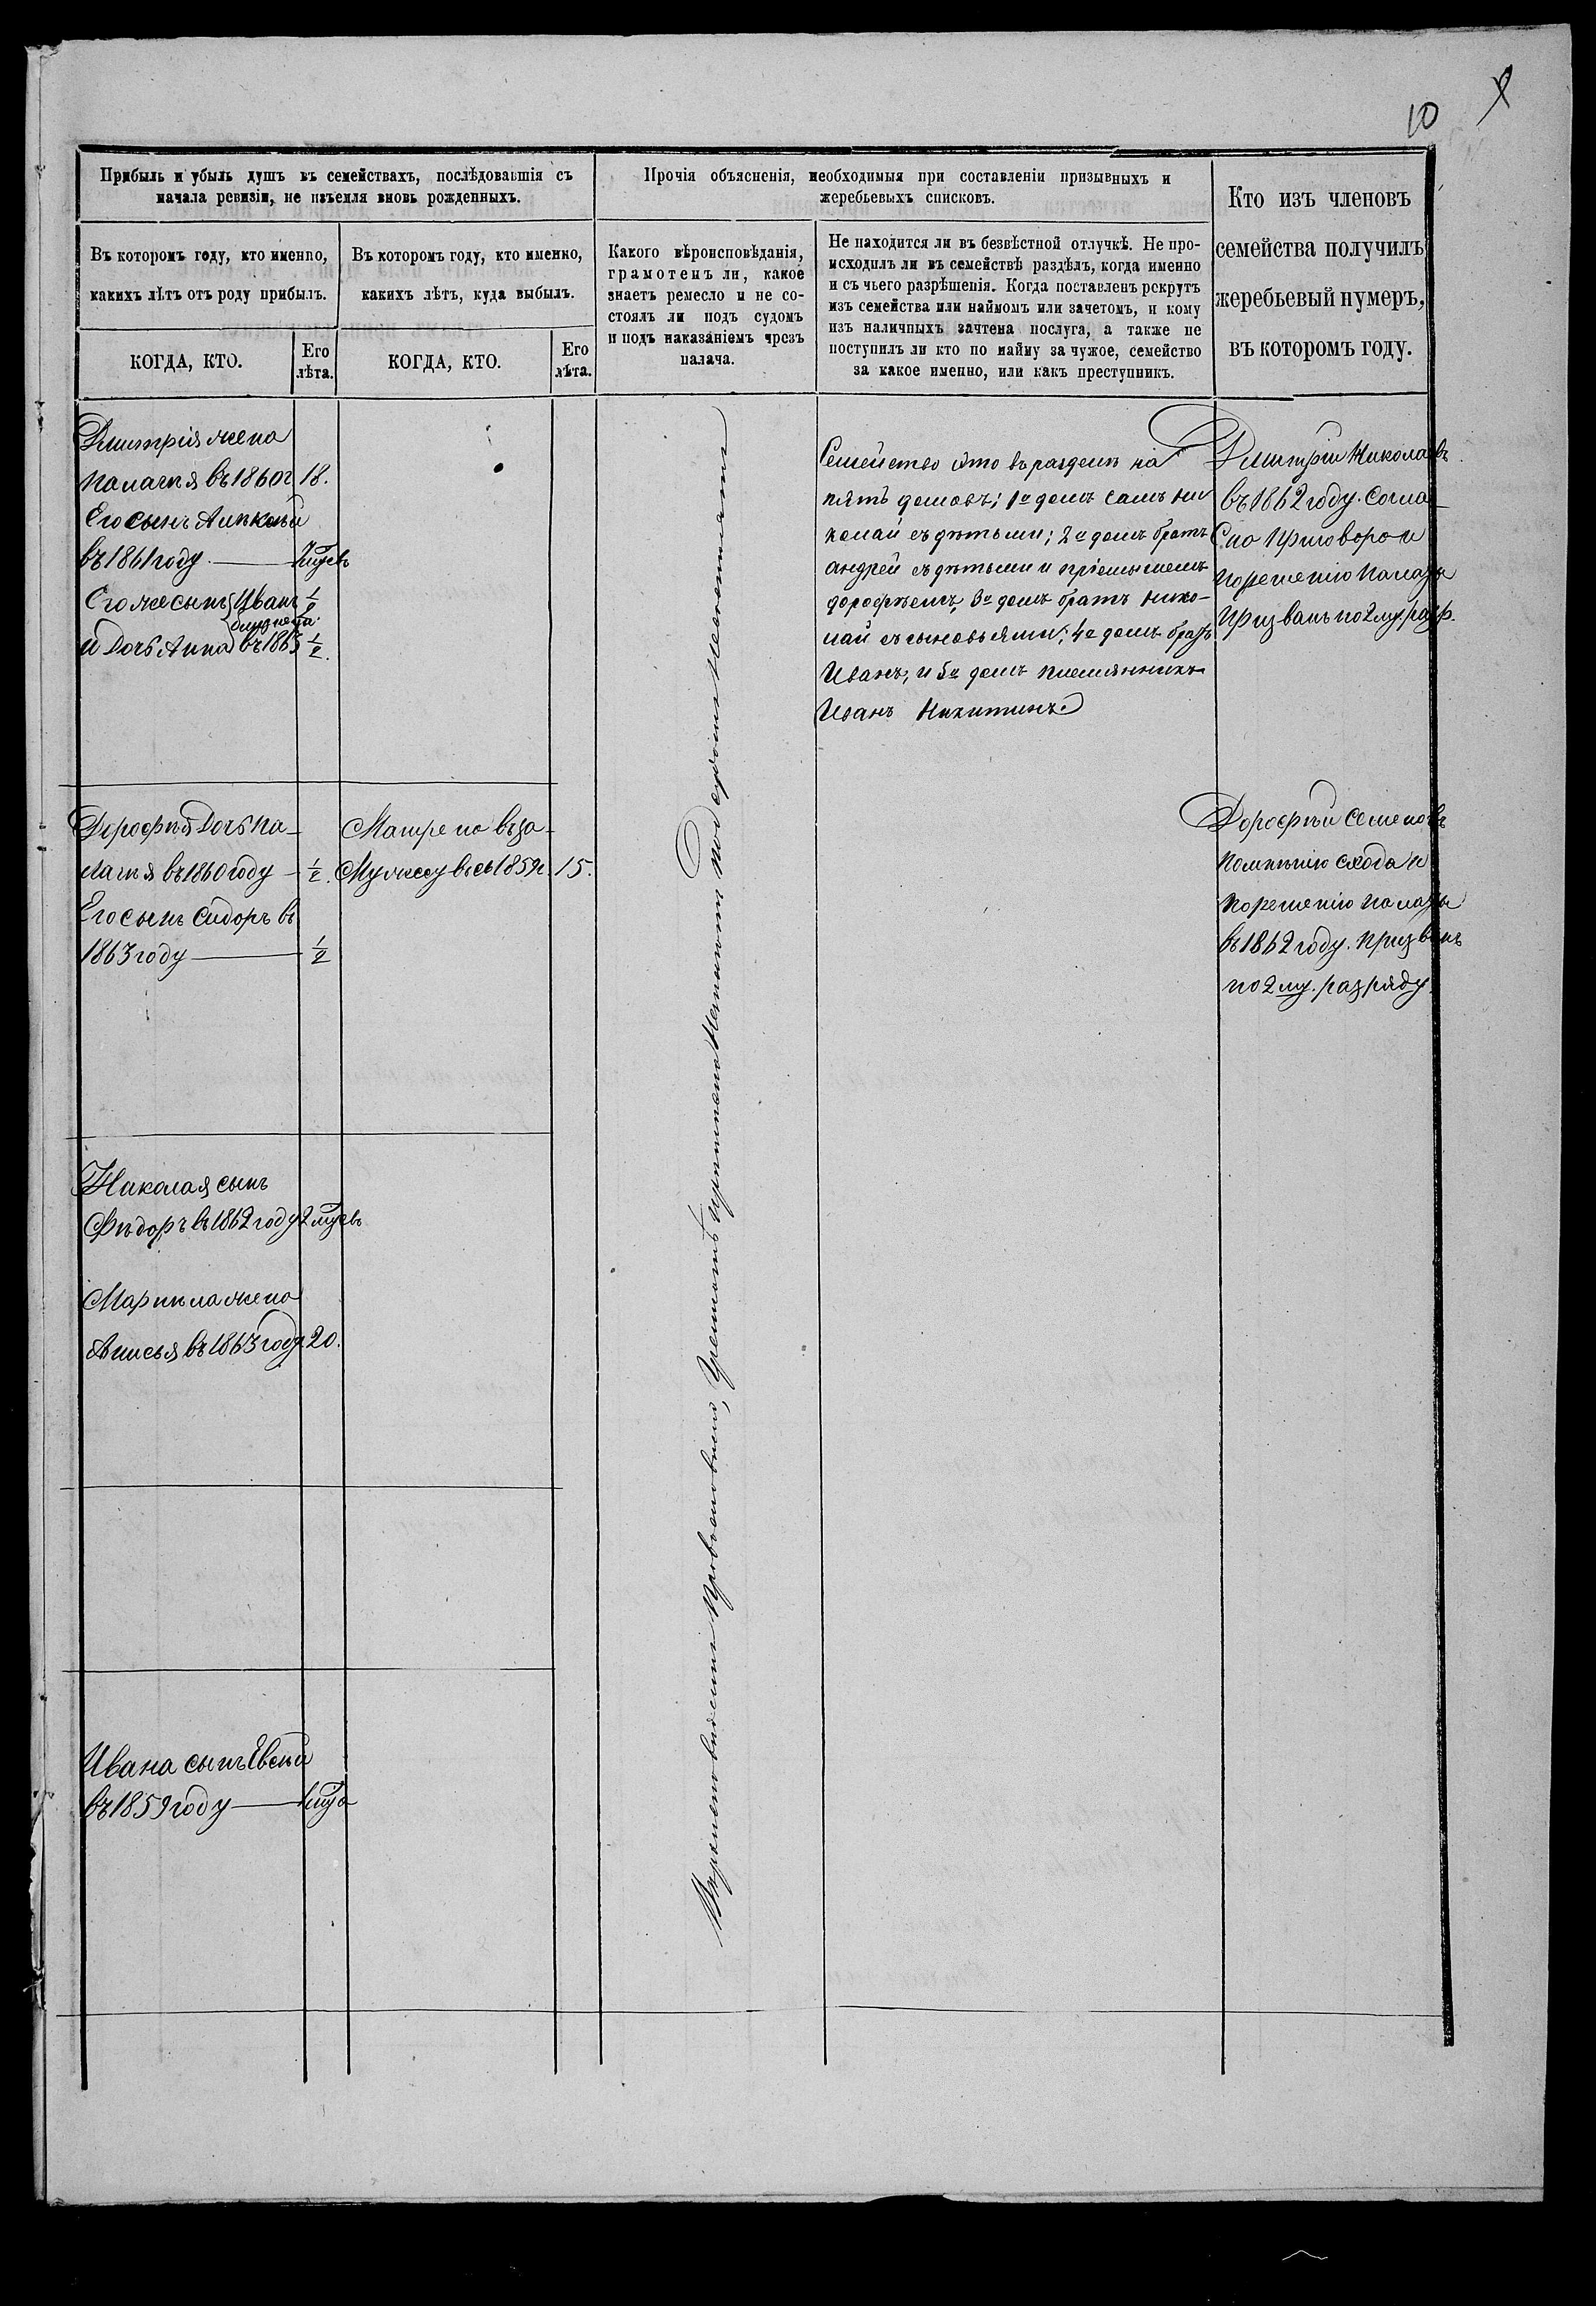 10
Прибыль и убыль душъ въ семействахъ, послѣдовавшія съ
начала ревизіи, не изъемля вновь рожденныхъ.
Въ которомъ году, кто именно,
какихъ лѣтъ отъ роду прибылъ.
КОГДА, КТО.
Его
лѣта.
Въ которомъ году, кто именно,
какихъ лѣтъ, куда выбылъ.
КОГДА, КТО.
Его
лѣта.
Прочія объясненія, необходимыя при составленіи призывныхъ и
жеребьевыхъ списковъ.
Какого вѣроисповѣданія,
грамотенъ ли, какое
знаетъ ремесло и не со-
стоялъ ли подъ судомъ
и подъ наказаніемъ чрезъ
палача.
Не находится ли въ безвѣстной отлучкѣ. Не про-
исходилъ ли въ семействѣ раздѣлъ, когда именно
и съ чьего разрѣшенія. Когда поставленъ рекрутъ
изъ семейства или наймомъ или зачетомъ, и кому
изъ наличныхъ зачтена послуга, а также не
поступилъ ли кто по найму за чужое, семейство
за какое именно, или какъ преступникъ.
Кто изъ членовъ
семейства получилъ
жеребьевый нумеръ,
въ которомъ году.
Дмитрія жена
палагея въ 1860 г 18.
Его сынъ Алексѣй
въ 1861 году
Его же сынъ Иванъ 1/2
близнецы
и Дочь Анна въ 1863 1/2.
Дорофѣя Дочь Па-
лагея въ 1860 году - 1/2.
Его сынъ Сидоръ въ
1863 году 1/2
Николая сынъ
Фѣдоръ въ 1862 году
жена
Анисья въ 1863 году 20.
Ивана сынъ Евсѣй
въ 1859 году
Матрена въ за-
Мужесву въ 1859 г. 15.
Вѣроисповѣданія Православнаго, Грамотѣ
Семейство это въ разделѣ на
пять домовъ; 1й домъ самъ ни
колай съ дѣтьми; 2й домъ братъ
андрей съ дѣтьми и пріемышемъ
дорофѣемъ, 3й домъ братъ нико-
лай съ сыновьями; 4й домъ братъ
Иванъ; и 5й домъ племянникъ
Иванъ Никитинъ.
Дмитрій Николаевъ
въ 1862 году. Согла-
Сно Приговора и
порешенію палаты
Призванъ по 2 му. разр.
Дорофѣй Семеновъ
помнѣнію схода и
порешенію палаты
въ 1862 году. призванъ
по 2 му. разряду.